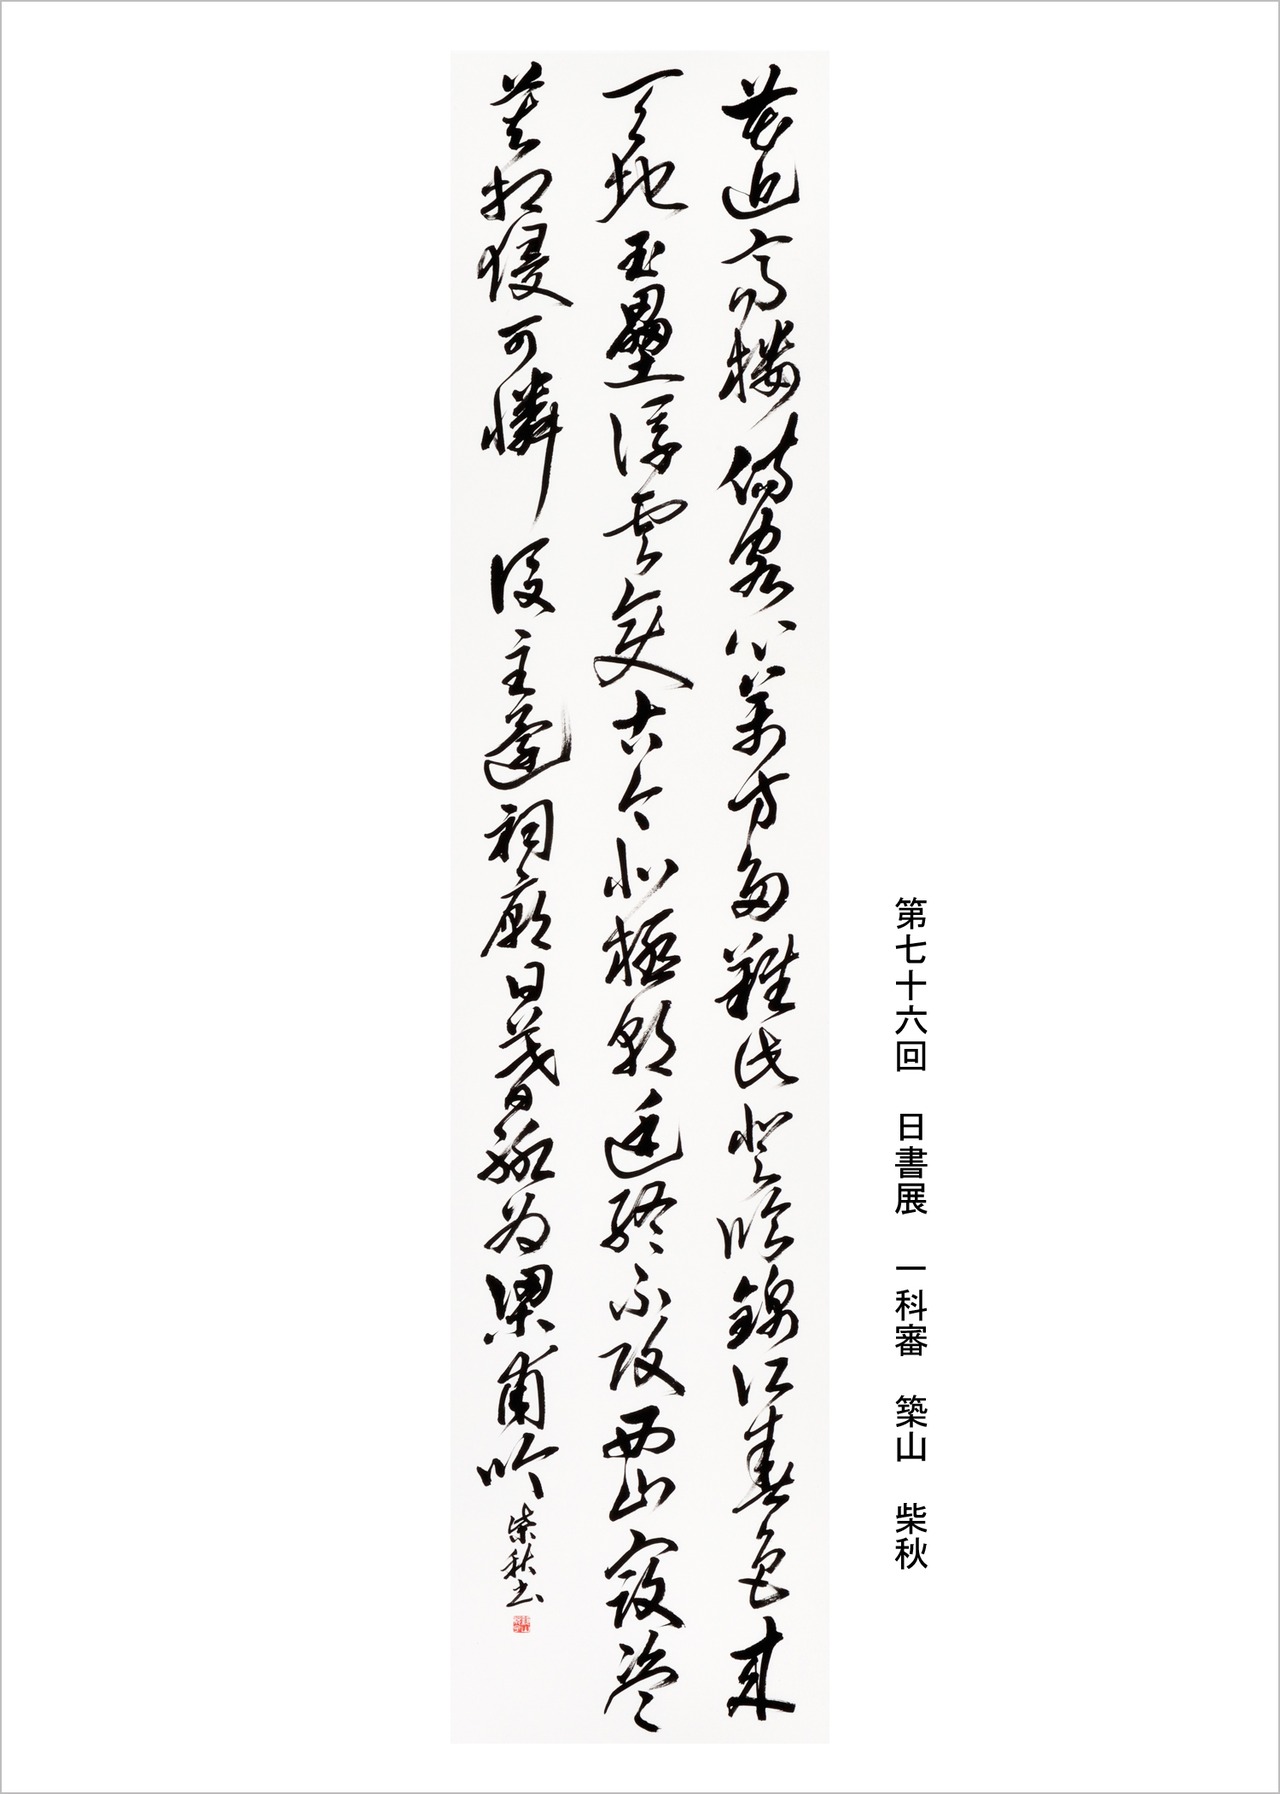 第七十六回　日書展　一科審　築山　柴秋
花近高樓傷客心萬方多難此登臨錦江春色来
天地玉壘浮雲變古今北極朝廷終不改西山寇盗
莫相侵可憐後主還祠廟日暮聊為梁甫吟 柴秋書